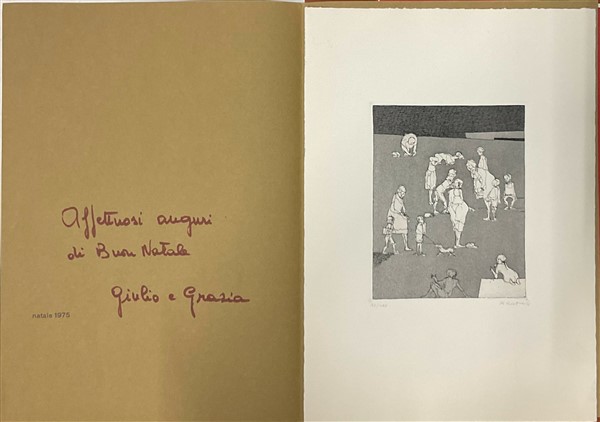 Affettuosi auguri
di Buon Natale
Giulio e Grazia
natale 1975